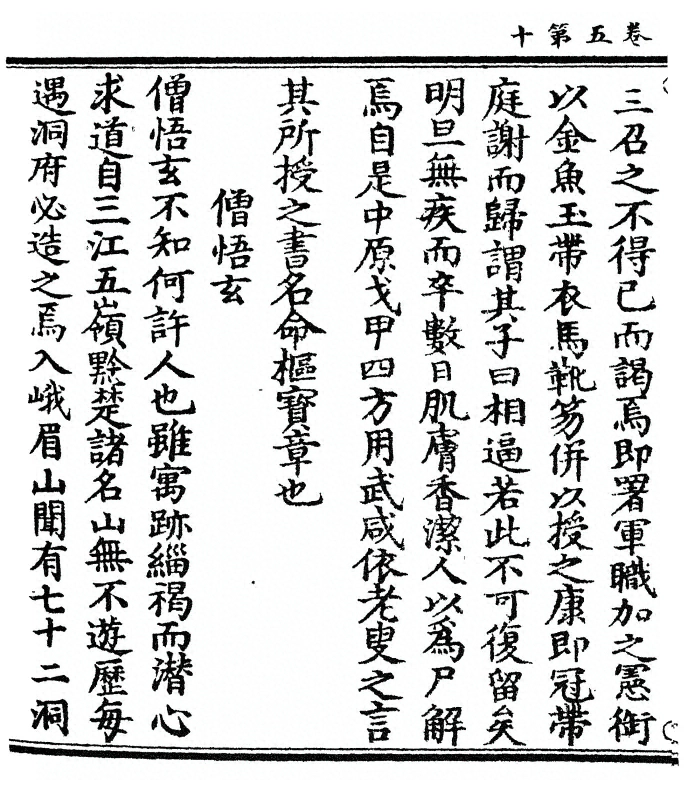 卷五第十
三召之不得已而謁焉即署軍職加之憲銜
以金魚玉帶衣馬靴笏併以授之康即冠帶
庭謝而歸謂其子曰相逼若此不可復留矣
明旦無疾而卒數日肌膚香潔人以為尸解
焉自是中原戈甲四方用武咸依老叟之言
其所授之書名命樞寶章也
僧悟玄
僧悟玄不知何許人也雖寓跡緇褐而潛心
求道自三江五嶺黔楚諸名山無不遊歷每
遇洞府必造之焉入峨眉山聞有七十二洞